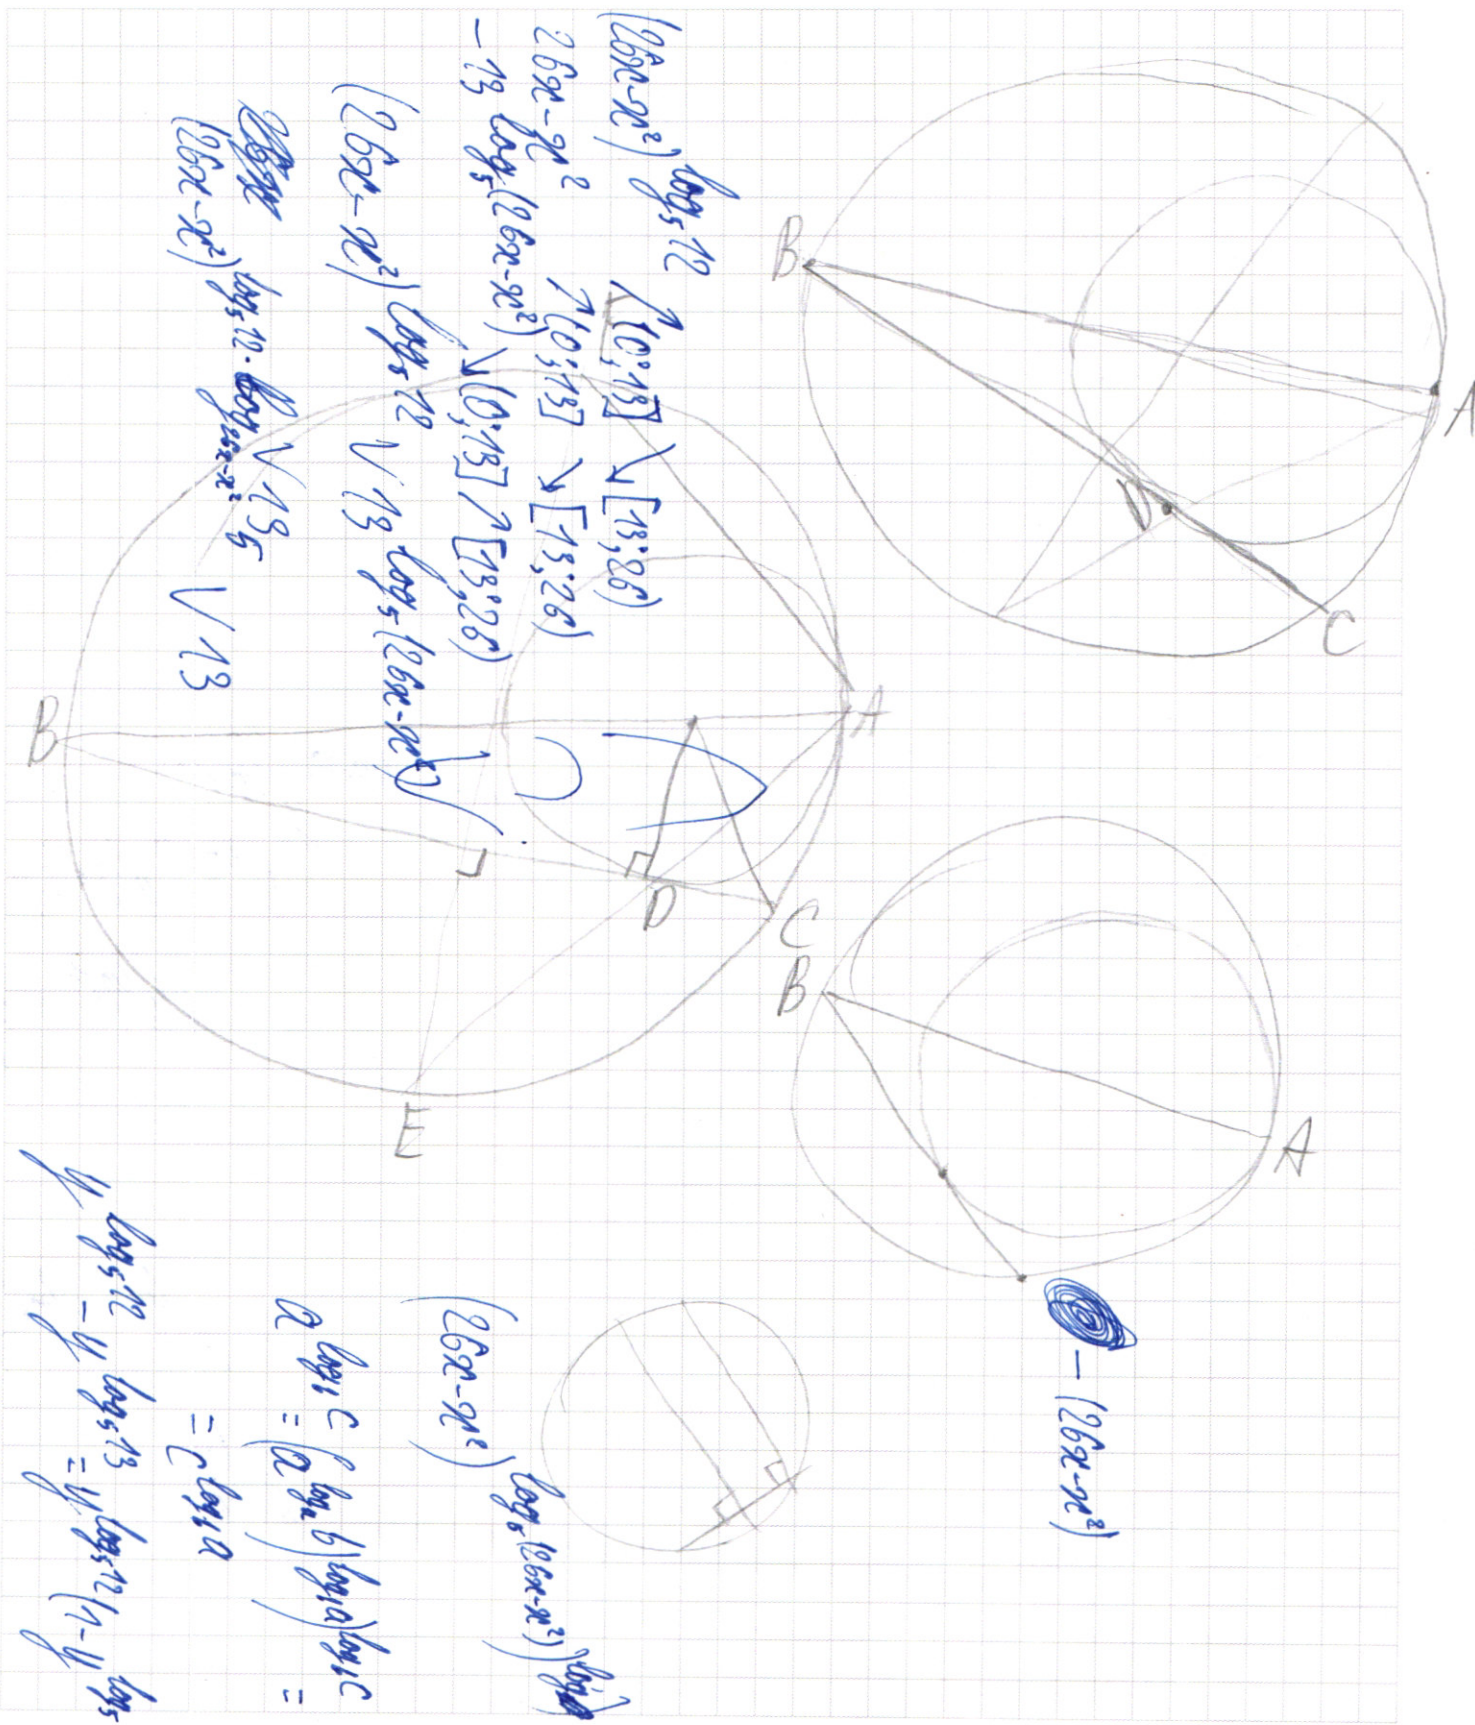 (26x-x²)^{log₅12} ↑(0;13] ↘[13;26)
26x-x² ↑(0;13] ↘[13;26)
-13^{log₅(26x-x²)} ↘(0;13] ↑[13;26)
(26x-x²)^{log₅12} ∨ 13^{log₅(26x-x²)}
(26x-x²)^{log₅12·log_{26x-x²}5} ∨ 13
∨ 13
B
A
D
C
B
A
D
C
E
B
A
-(26x-x²)
(26x-x²)^{log₅(26x-x²)}
a^{log_b c} = (a^{log_a b})^{log_b a) log_b c} =
= c^{log_b a}
y^{log₅12} - y^{log₅13} = y^{log₅12}(1-y^{log₅